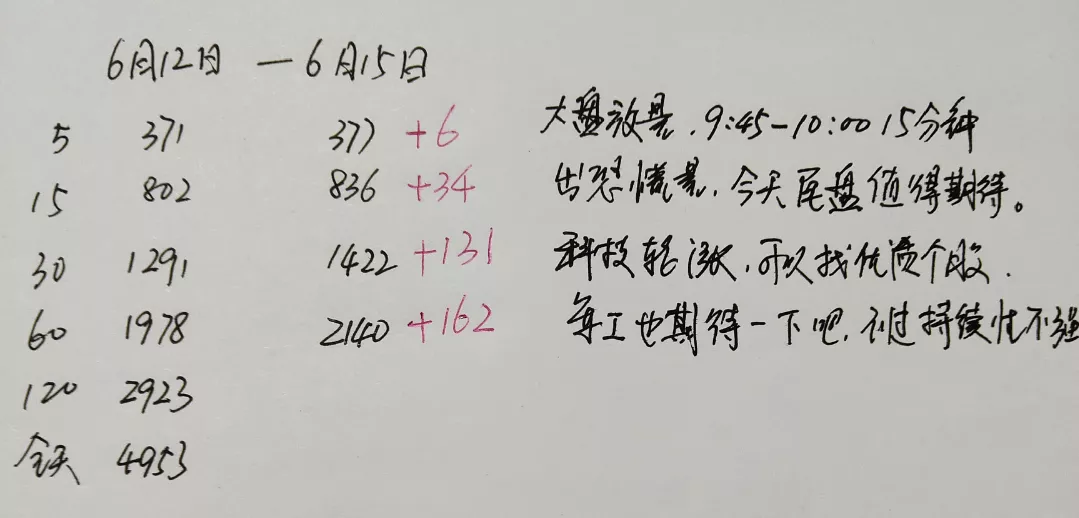 6月12日 — 6月15日
5 371 377 +6
15 802 836 +34
30 1291 1422 +131
60 1978 2140 +162
120 2923
全天 4953
大盘放量.9:45-10:00 15分钟
出恐慌量,今天尾盘值得期待。
科技轮涨,可以找优质个股.
军工也期待一下吧,不过持续性不强